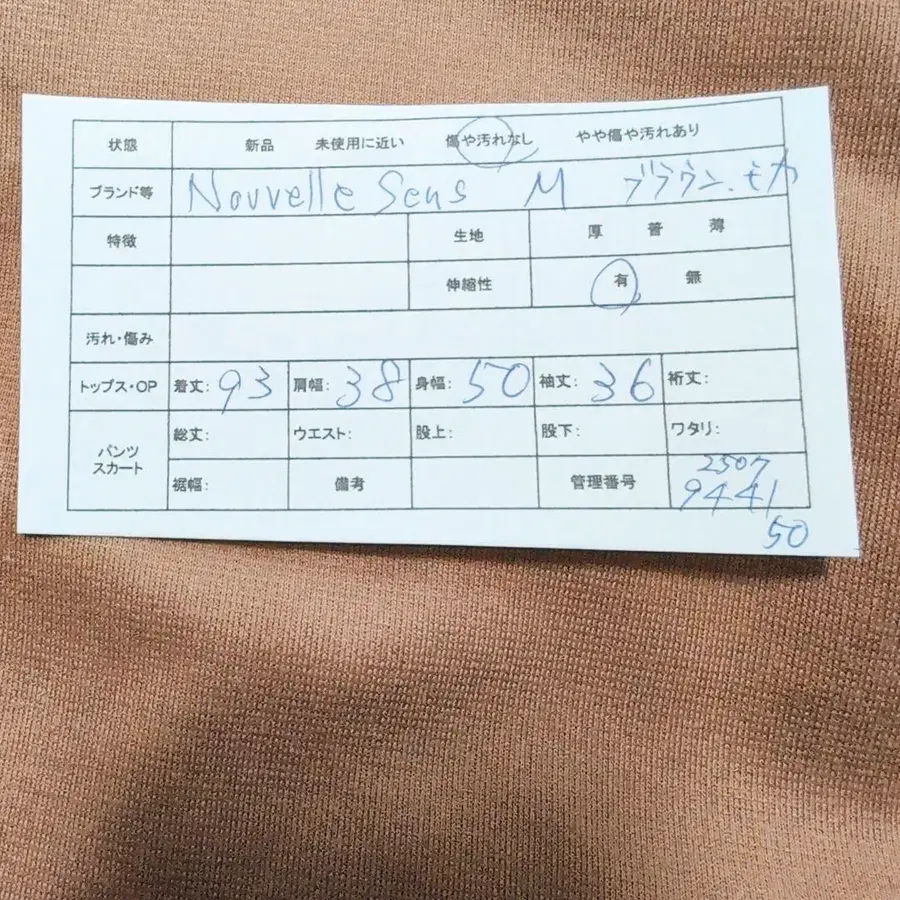 状態 新品 未使用に近い 傷や汚れなし やや傷や汚れあり
ブランド等 Nouvelle Sens M ブラウン、モカ
特徴 生地 厚 普 薄
伸縮性 有 無
汚れ・傷み
トップス・OP 着丈: 93 肩幅: 38 身幅: 50 袖丈: 36 裄丈:
パンツ スカート 総丈: ウエスト: 股上: 股下: ワタリ:
裾幅: 備考 管理番号 2507
9441
50